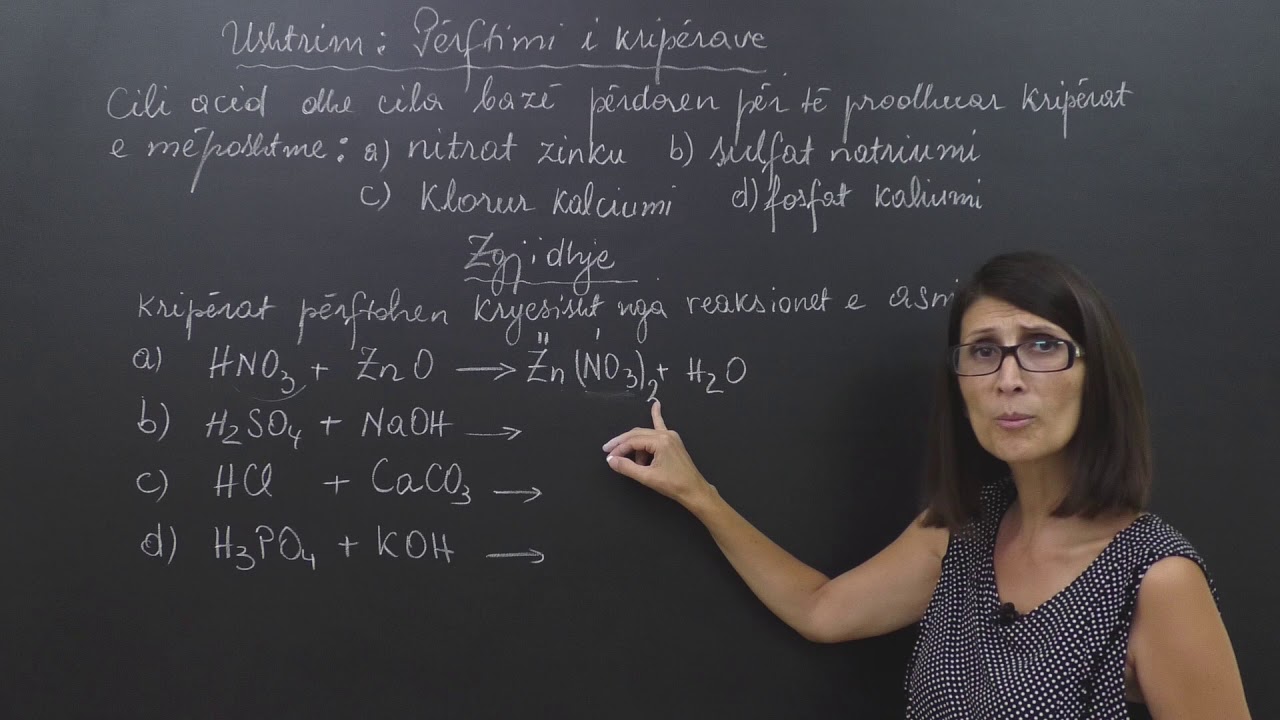 Ushtrim: Përftimi i kripërave
Cili acid dhe cila bazë përdoren për të prodhuar kripërat
e mëposhtme: a) nitrat zinku b) sulfat natriumi
c) klorur kalciumi d) fosfat kaliumi
Zgjidhje
kripërat përftohen kryesisht nga reaksionet e asnj
a) HNO₃ + ZnO → Zn(NO₃)₂ + H₂O
b) H₂SO₄ + NaOH →
c) HCl + CaCO₃ →
d) H₃PO₄ + KOH →